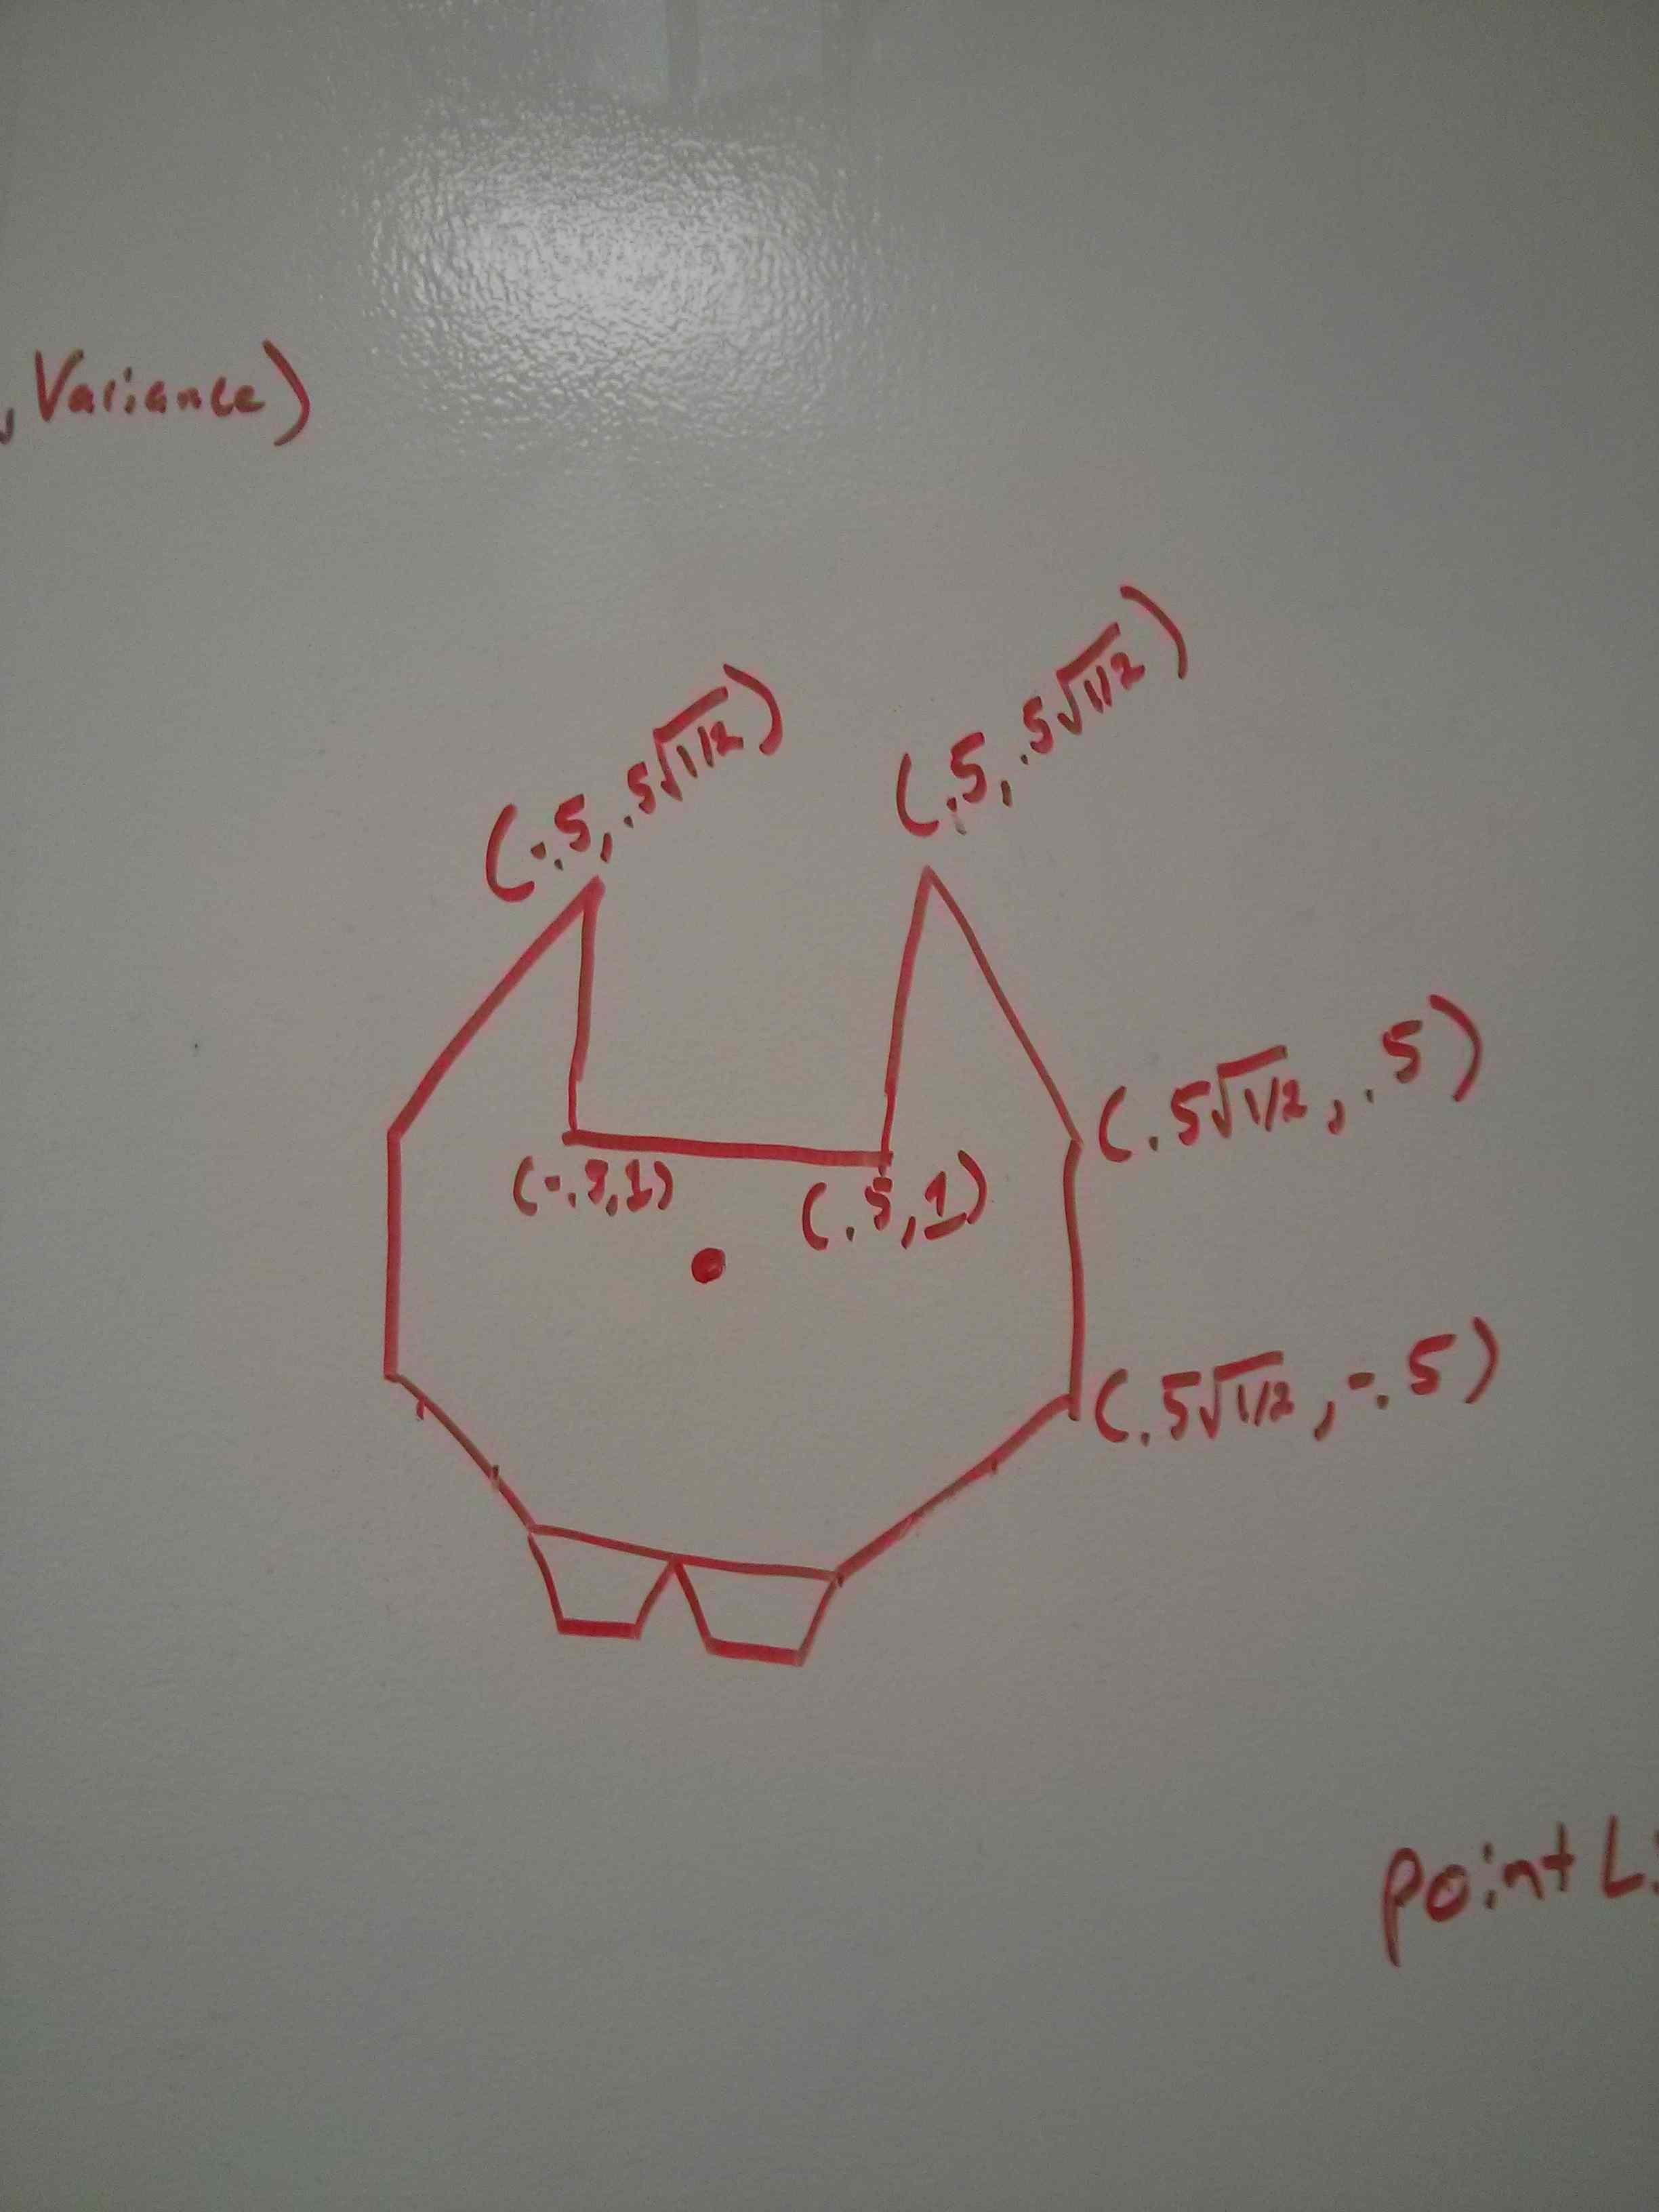 , Variance)
(-.5, .5√1/2)
(.5, .5√1/2)
(.5√1/2, .5)
(.5, 1)
(.5√1/2, -.5)
point L